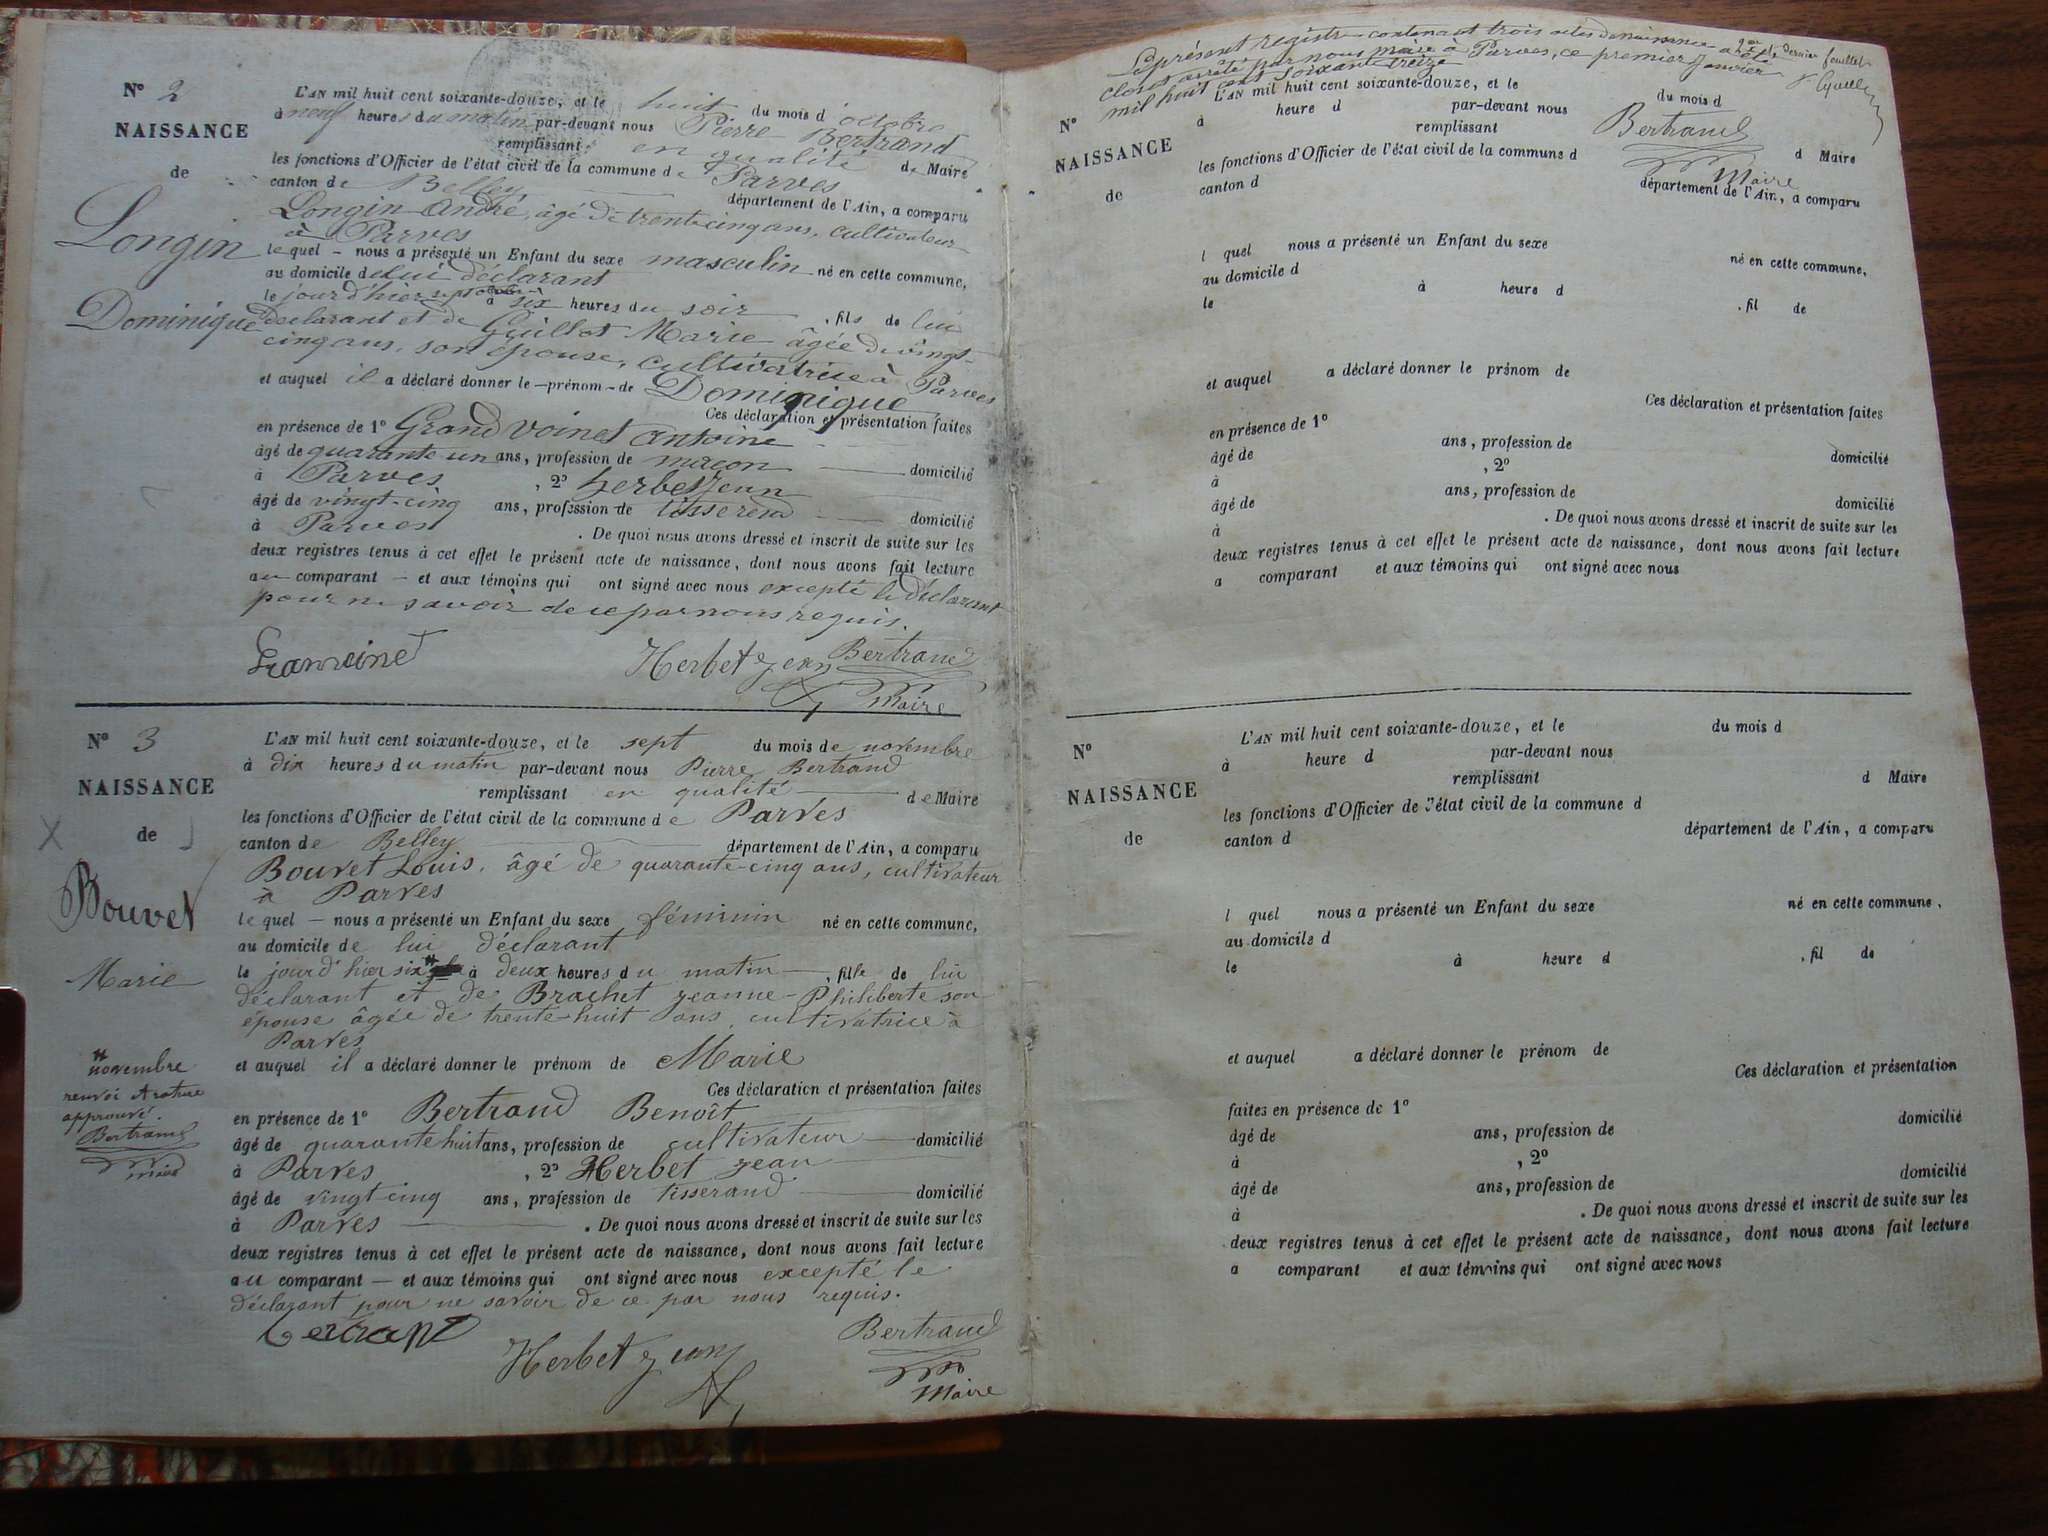 N° 2
NAISSANCE
de
Longin
Dominique
L'AN mil huit cent soixante-douze, et le huit du mois d'octobre
à neuf heures du matin par-devant nous Pierre Bertrand
remplissant en qualité de Maire
les fonctions d'Officier de l'état civil de la commune de Parves
canton de Belley département de l'Ain, a comparu
Longin André, âgé de trente cinq ans, cultivateur
à Parves
lequel — nous a présenté un Enfant du sexe masculin né en cette commune,
au domicile de lui déclarant
le jour d'hier sept à six heures du soir , fils de lui
déclarant et de Guillot Marie âgée de vingt-
cinq ans, son épouse, cultivatrice à Parves
et auquel il a déclaré donner le — prénom — de Dominique
Ces déclaration et présentation faites
en présence de 1° Grand voinet Antoine
âgé de quarante un ans, profession de maçon domicilié
à Parves , 2° herbet Jean
âgé de vingt-cinq ans, profession de tisserend domicilié
à Parves . De quoi nous avons dressé et inscrit de suite sur les
deux registres tenus à cet effet le présent acte de naissance, dont nous avons fait lecture
au comparant — et aux témoins qui ont signé avec nous excepté le déclarant
pour ne savoir de ce par nous requis.
Herbet Jean Bertrand
Maire
N° 3
NAISSANCE
de
Bouvet
Marie
novembre
renvoi et rature
approuvé.
Bertrand
L'AN mil huit cent soixante-douze, et le sept du mois de novembre
à dix heures du matin par-devant nous Pierre Bertrand
remplissant en qualité de Maire
les fonctions d'Officier de l'état civil de la commune de Parves
canton de Belley département de l'Ain, a comparu
Bouvet Louis, âgé de quarante-cinq ans, cultivateur
à Parves
lequel — nous a présenté un Enfant du sexe féminin né en cette commune,
au domicile de lui déclarant
le jour d'hier six à deux heures du matin , fille de lui
déclarant et de Brachet Jeanne-Philiberte son
épouse âgée de trente-huit ans, cultivatrice à
Parves
et auquel il a déclaré donner le prénom de Marie
Ces déclaration et présentation faites
en présence de 1° Bertrand Benoît
âgé de quarante huit ans, profession de cultivateur domicilié
à Parves , 2° Herbet Jean
âgé de vingt-cinq ans, profession de tisserand domicilié
à Parves . De quoi nous avons dressé et inscrit de suite sur les
deux registres tenus à cet effet le présent acte de naissance, dont nous avons fait lecture
au comparant — et aux témoins qui ont signé avec nous excepté le
déclarant pour ne savoir de ce par nous requis.
Bertrand
Herbet Jean
Maire
Le présent registre contenant trois actes de naissance a été
clos et arrêté par nous maire à Parves, ce premier Janvier
mil huit cent soixante treize
dernier feuillet
Bertrand
Maire
N°
NAISSANCE
de
L'AN mil huit cent soixante-douze, et le du mois d
à heure d par-devant nous
remplissant d Maire
les fonctions d'Officier de l'état civil de la commune d
canton d département de l'Ain, a comparu
l quel nous a présenté un Enfant du sexe né en cette commune,
au domicile d
le à heure d , fil de
et auquel a déclaré donner le prénom de
Ces déclaration et présentation faites
en présence de 1°
âgé de ans, profession de domicilié
à , 2°
âgé de ans, profession de domicilié
à . De quoi nous avons dressé et inscrit de suite sur les
deux registres tenus à cet effet le présent acte de naissance, dont nous avons fait lecture
a comparant et aux témoins qui ont signé avec nous
N°
NAISSANCE
de
L'AN mil huit cent soixante-douze, et le du mois d
à heure d par-devant nous
remplissant d Maire
les fonctions d'Officier de l'état civil de la commune d
canton d département de l'Ain, a comparu
l quel nous a présenté un Enfant du sexe né en cette commune.
au domicile d
le à heure d , fil de
et auquel a déclaré donner le prénom de
Ces déclaration et présentation
faites en présence de 1°
âgé de ans, profession de domicilié
à , 2°
âgé de ans, profession de domicilié
à . De quoi nous avons dressé et inscrit de suite sur les
deux registres tenus à cet effet le présent acte de naissance, dont nous avons fait lecture
a comparant et aux témoins qui ont signé avec nous